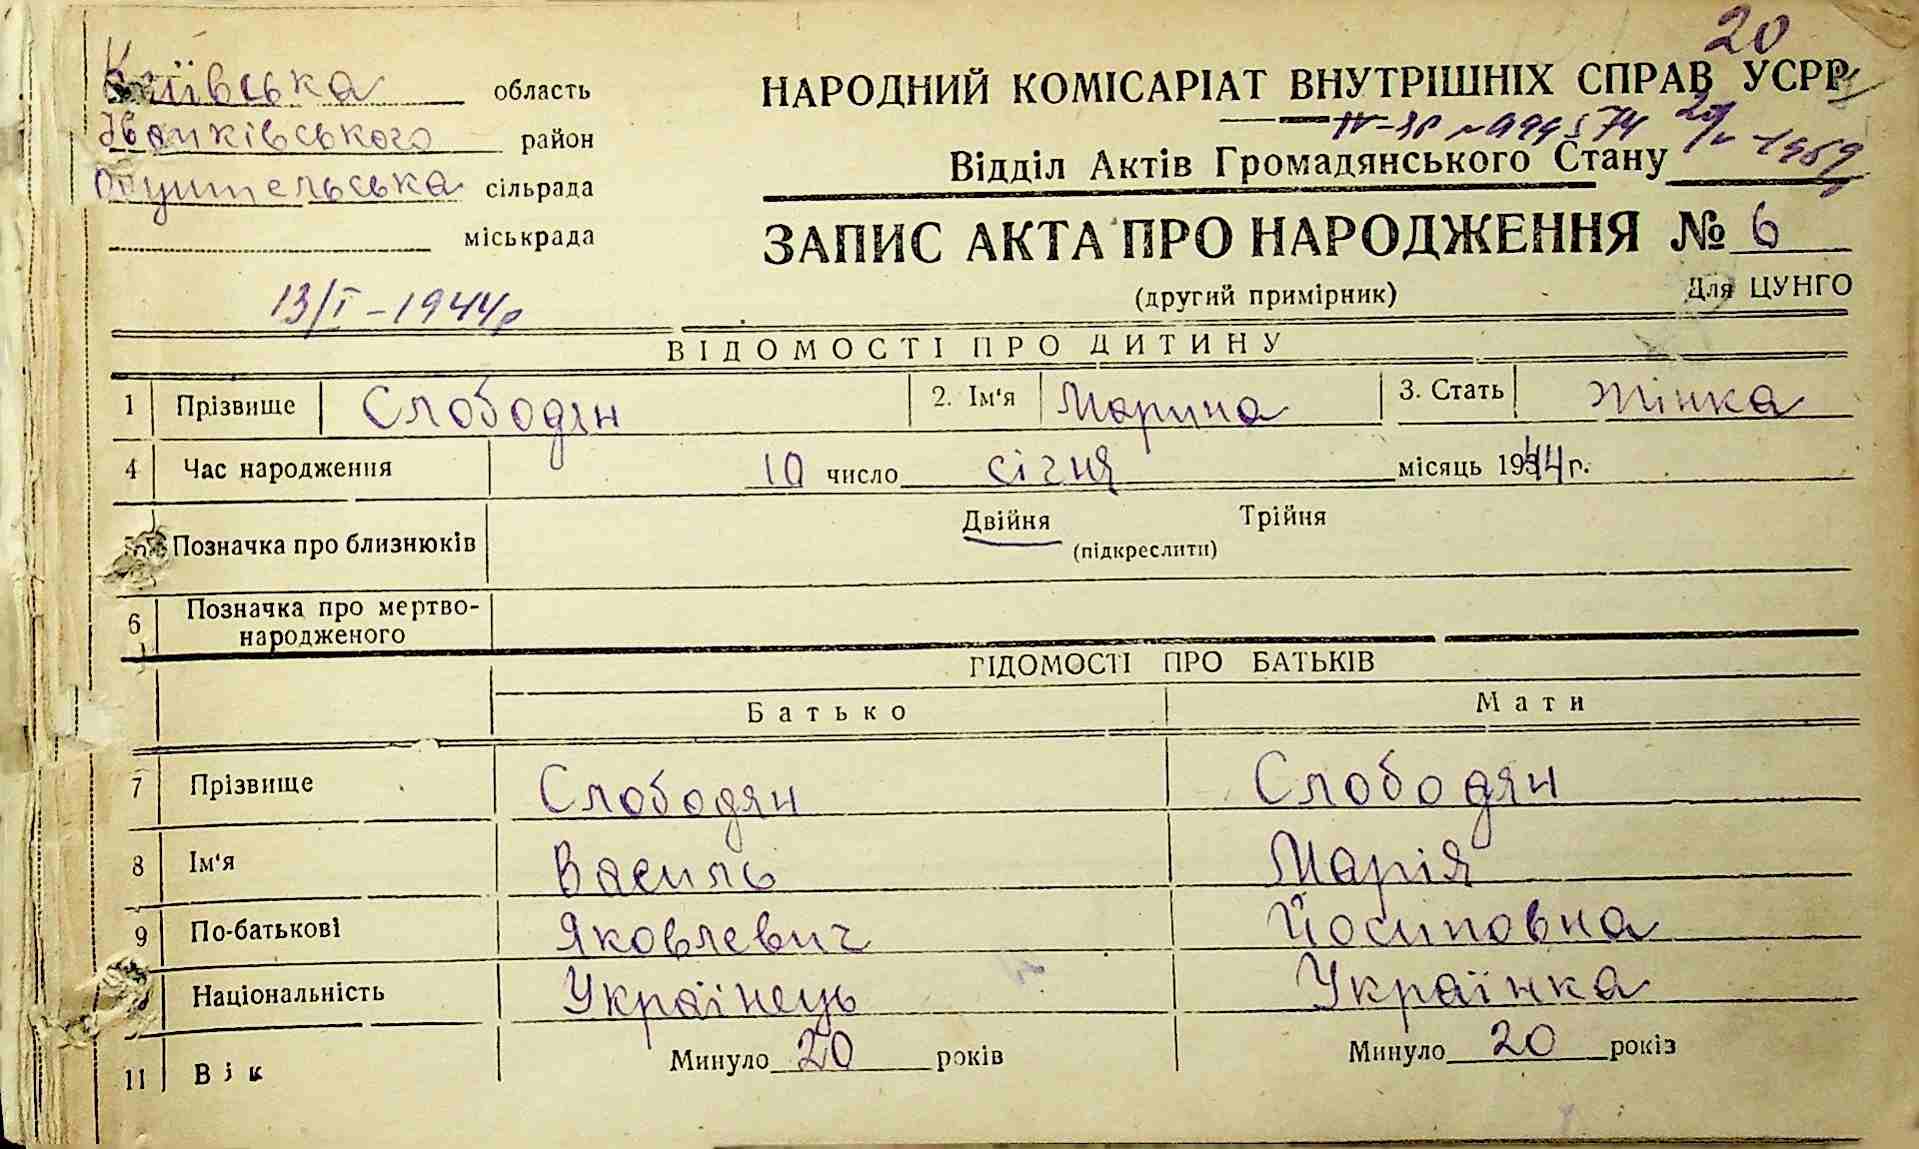 20
Київська область
Іванківського район
сільрада
міськрада
НАРОДНИЙ КОМІСАРІАТ ВНУТРІШНІХ СПРАВ УСРР
Відділ Актів Громадянського Стану
ЗАПИС АКТА ПРО НАРОДЖЕННЯ № 6
(другий примірник) Для ЦУНГО
13/І - 1944р
ВІДОМОСТІ ПРО ДИТИНУ
1 Прізвище Слободян 2. Ім'я Марина 3. Стать Жінка
4 Час народження 10 число січня місяць 1944 г.
Позначка про близнюків Двійня Трійня
(підкреслити)
6 Позначка про мертво-
народженого
ГІДОМОСТІ ПРО БАТЬКІВ
Батько Мати
7 Прізвище Слободян Слободян
8 Ім'я Василь Марія
9 По-батькові Яковлевич Йосиповна
Національність Українець Українка
11 Вік Минуло 20 років Минуло 20 років